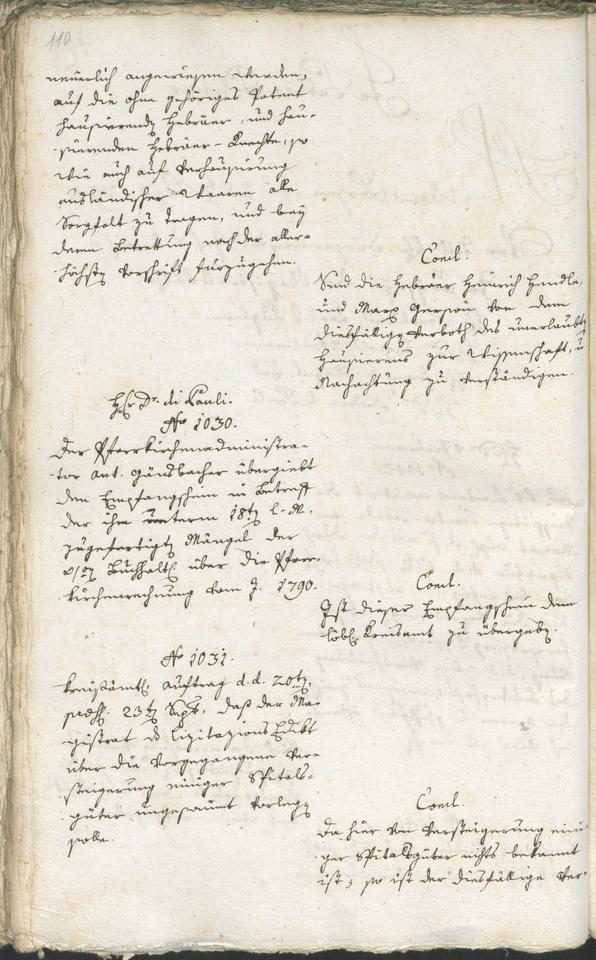 110
neuerlich angewiesen werden,
auf die ohne gehöriges Patent
hausierendẽ Hebräer, und hau-
sierenden Hebräer-Knechte, so
wie auch auf Verhausierung
ausländischer Waaren alle
Sorgfalt zu tragen, und bey
deren Betrettung nach der aller-
höchstẽ Vorschrift fürzugehen.
Concl.
Sind die Hebräer Heinrich Hendle,
und Marx Gerson von dem
diesfälligẽ Verboth des unerlaubtẽ
Hausierens zur Wissenschaft, u
Nachachtung zu verständigen.
Hr Dr. di Pauli.
No 1030.
Der Pfarrkirchenadministra-
tor Ant. Gänsbacher übergiebt
den Empfangschein in Betreff
der ihm unterm 18tẽ l. M.
zugefertigtẽ Mängel der
Buchhaltg über die Pfarr-
kirchenrechnung vom J. 1790.
Concl.
Ist dieser Empfangschein dem
löbl. Kreisamt zu übergebẽ.
No 1031.
Kreisämtl. Auftrag d. d. 20tẽ,
präs. 23tẽ Sept., daß der Ma-
gistrat das Lizitazions Edikt
über die vorgegangene Ver-
steigerung einiger Spitals-
güter ungesäumt vorlegẽ
solle.
Concl.
Da hier von Versteigerung eini-
ger Spitalsgüter nichts bekannt
ist; so ist der diesfällige Ver-